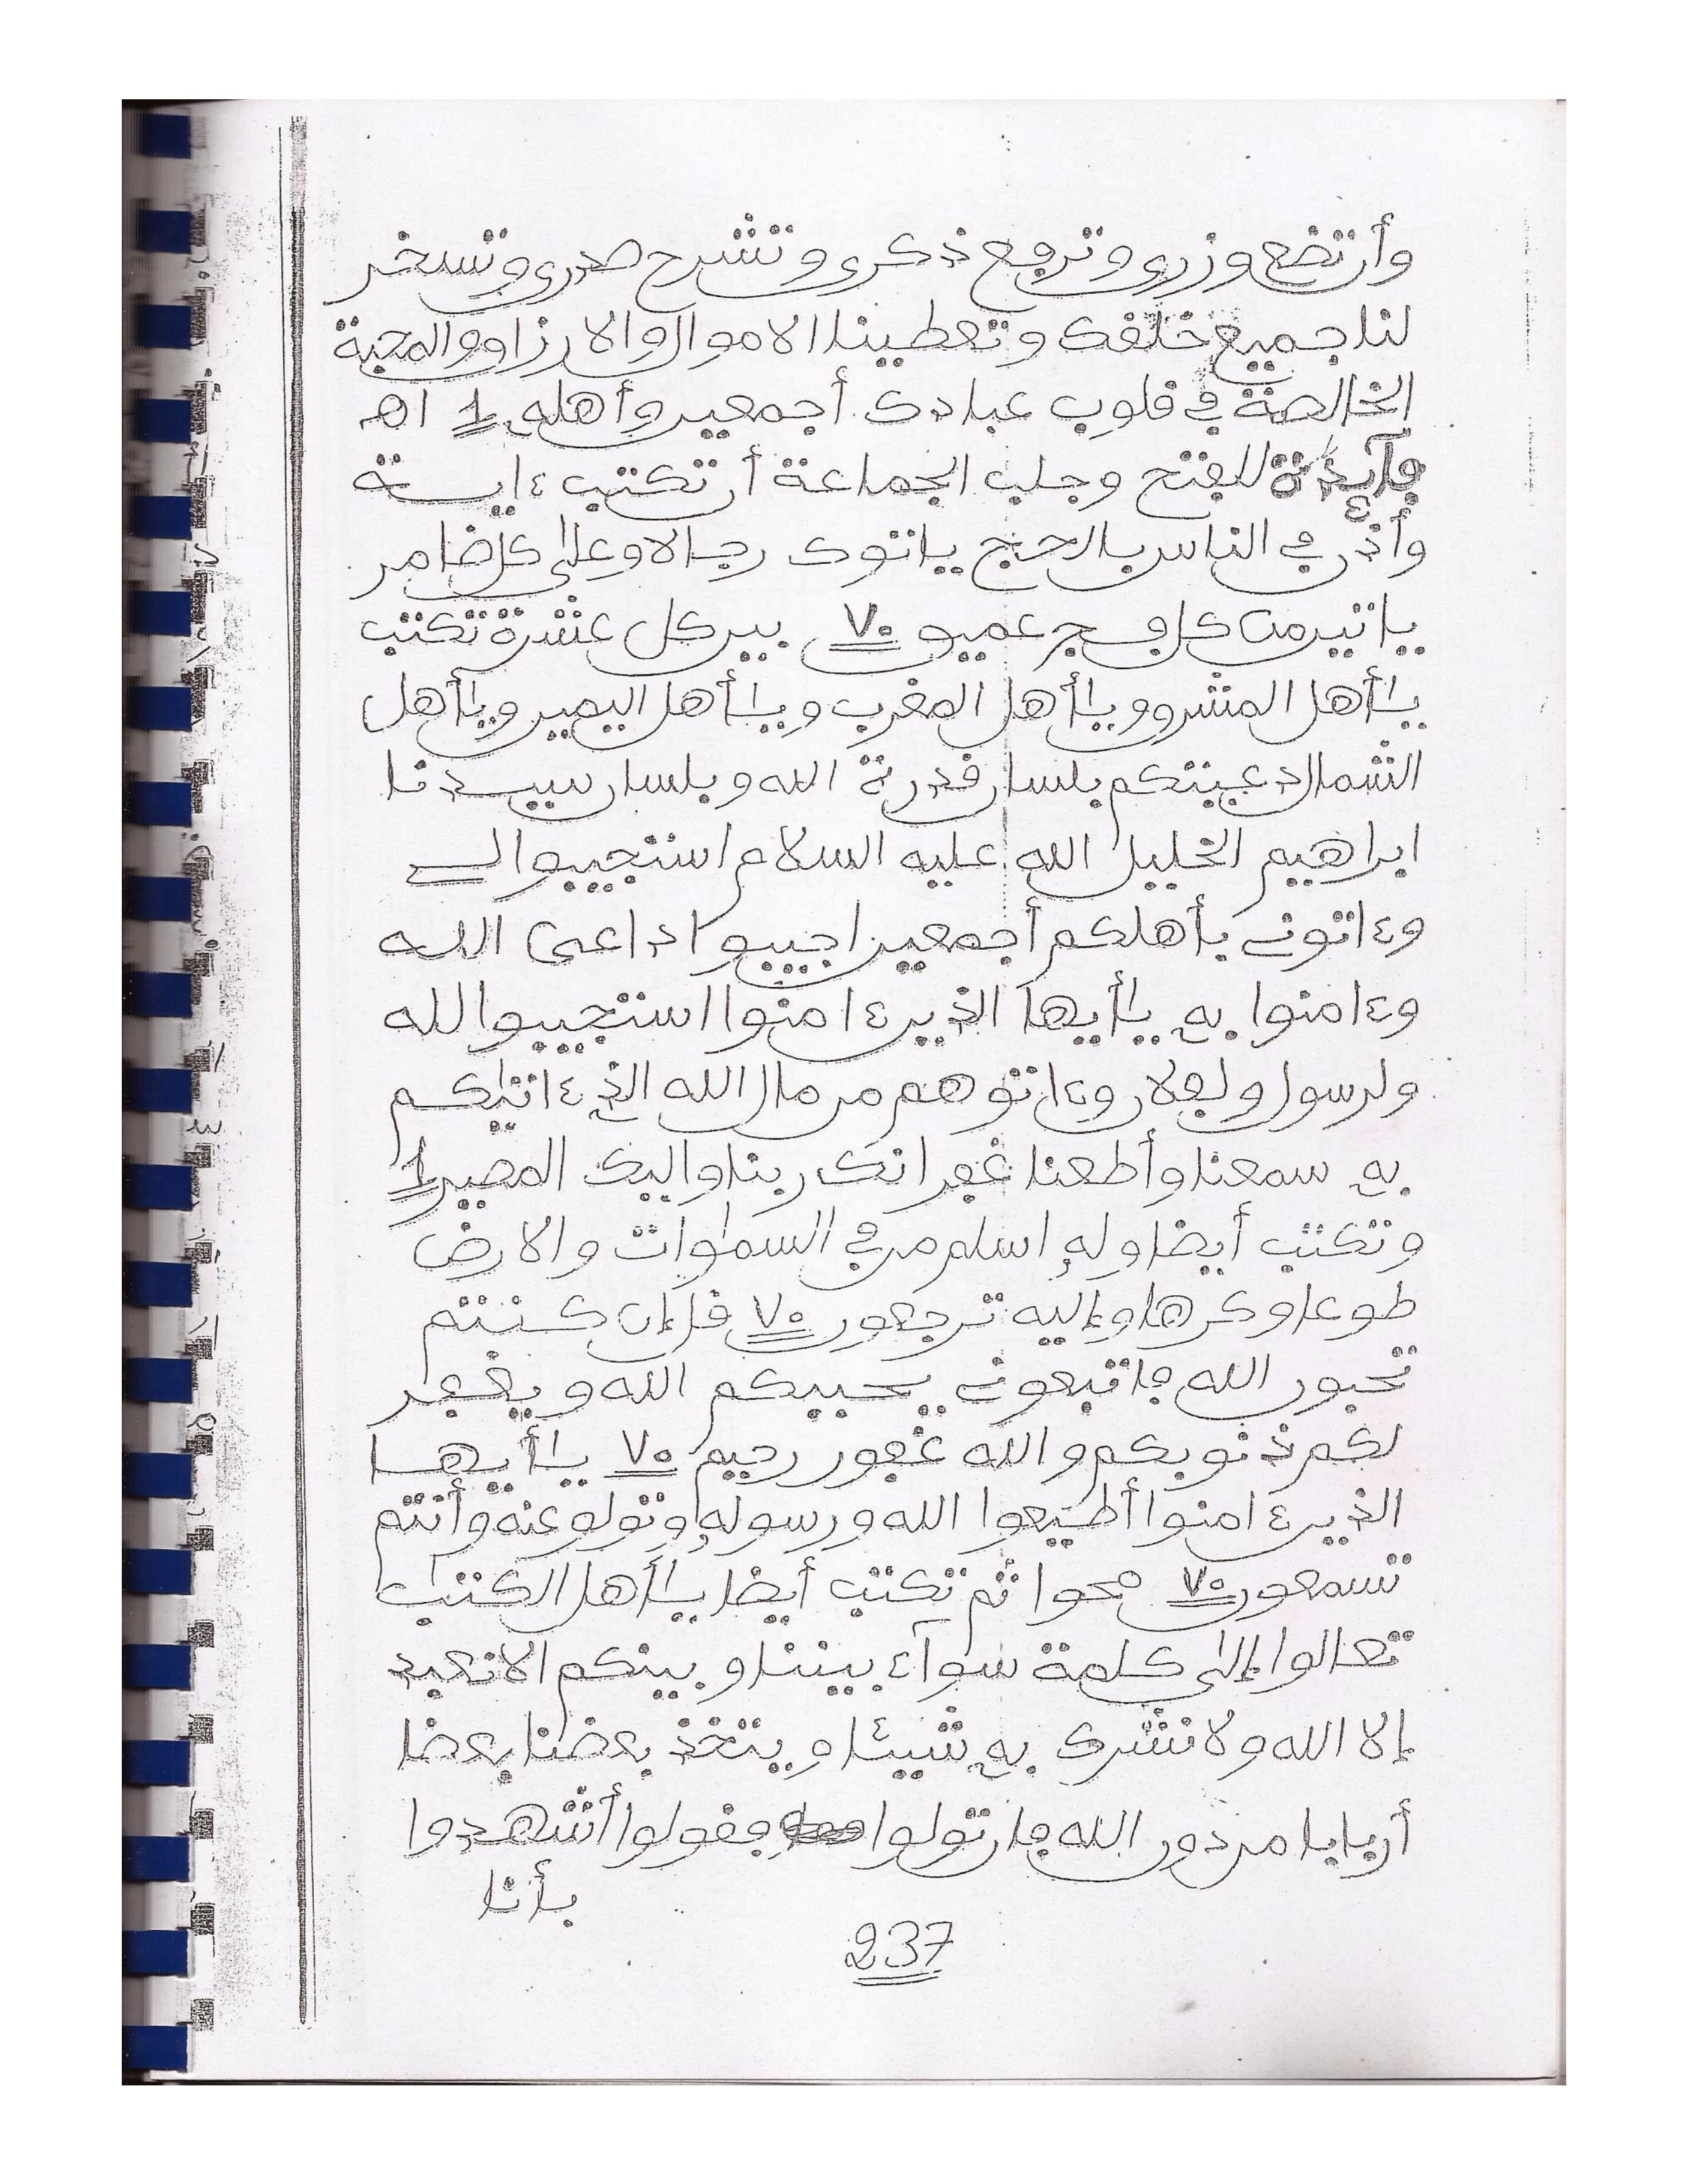 وأن تضع وزري وترفع ذكري وتشرح صدري وتسخر
لنا جميع خلقك وتعطينا الاموال والارزاق والمحبة
الخالصة في قلوب عبادك أجمعين وأهله 1 اهـ
فآيدة للفتح وجلب الجماعة أن تكتب ءايــة
وأذن في الناس بالحج ياتوك رجالا وعلى كل ضامر
ياتين من كل فج عميق ٧٠ بين كل عشرة تكتب
يـأهل المشرق ويـأهل المغرب ويـأهل اليمين ويـأهل
الشمال دعيتكم بلسان قدرة الله وبلسان سيدنا
ابراهيم الخليل الله عليه السلام استجيبوا لي
وءاتوني بأهلكم أجمعين اجيبوا داعي الله
وءامنوا به يـأيها الذين ءامنوا استجيبوا لله
ولرسول ولفلان وءاتوهم من مال الله الذي ءاتيكم
به سمعنا وأطعنا غفرانك ربنا واليك المصير 1
وتكتب أيضا وله اسلم من في السموات والارض
طوعا وكرها وإليه ترجعون ٧٠ قل إن كنتم
تحبون الله فاتبعوني يحببكم الله ويغفر
لكم ذنوبكم والله غفور رحيم ٧٠ يـأيها
الذين ءامنوا أطيعوا الله ورسوله وتولو عنه وأنتم
تسمعون ٧٠ محوا ثم تكتب أيضا يـأهل الكتب
تعالوا إلى كلمة سوآء بيننا وبينكم الا نعبد
إلا الله ولا نشرك به شيئا ويتخذ بعضنا بعضا
أربابا من دون الله فان تولوا فقولوا أشهدوا
بأنا
237